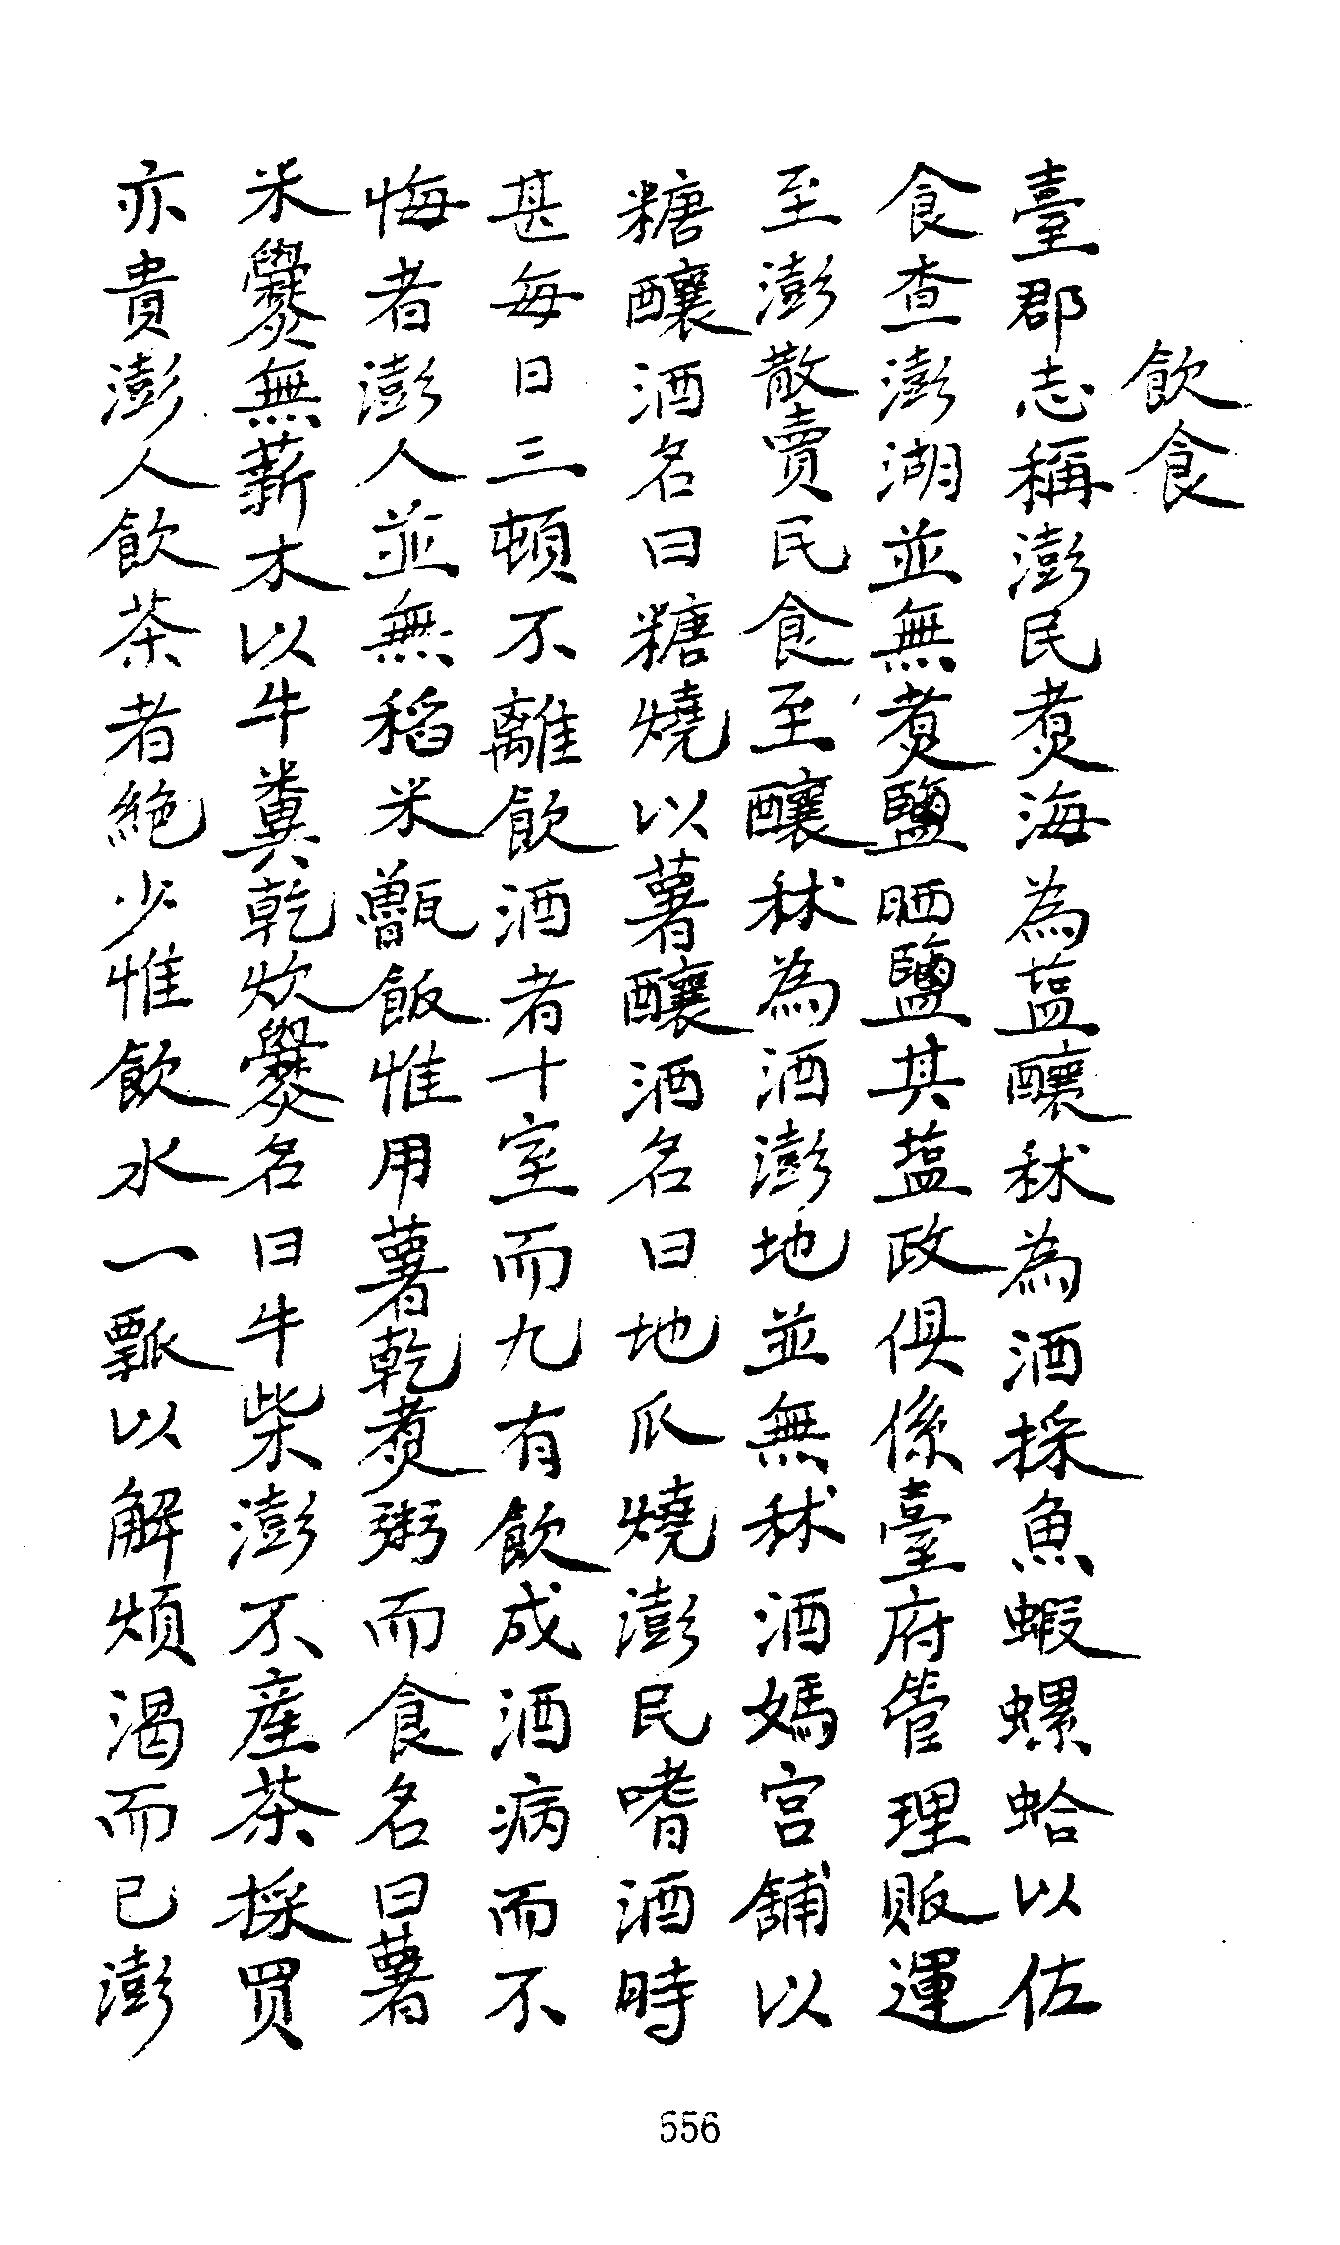 飲食
臺郡志稱澎民煑海為塩釀秫為酒採魚蝦螺蛤以佐
食查澎湖並無煑鹽晒鹽其塩政俱係臺府管理販運
至澎散賣民食至釀秫為酒澎地並無秫酒媽宮舖以
糖釀酒名曰糖燒以薯釀酒名曰地瓜燒澎民嗜酒時
甚每日三頓不離飲酒者十室而九有飲成酒病而不
悔者澎人並無稻米甑飯惟用薯乾煑粥而食名曰薯
米爨無薪木以牛糞乾炊爨名曰牛柴澎不產茶採買
亦貴澎人飲茶者絕少惟飲水一瓢以解煩渴而已澎
556